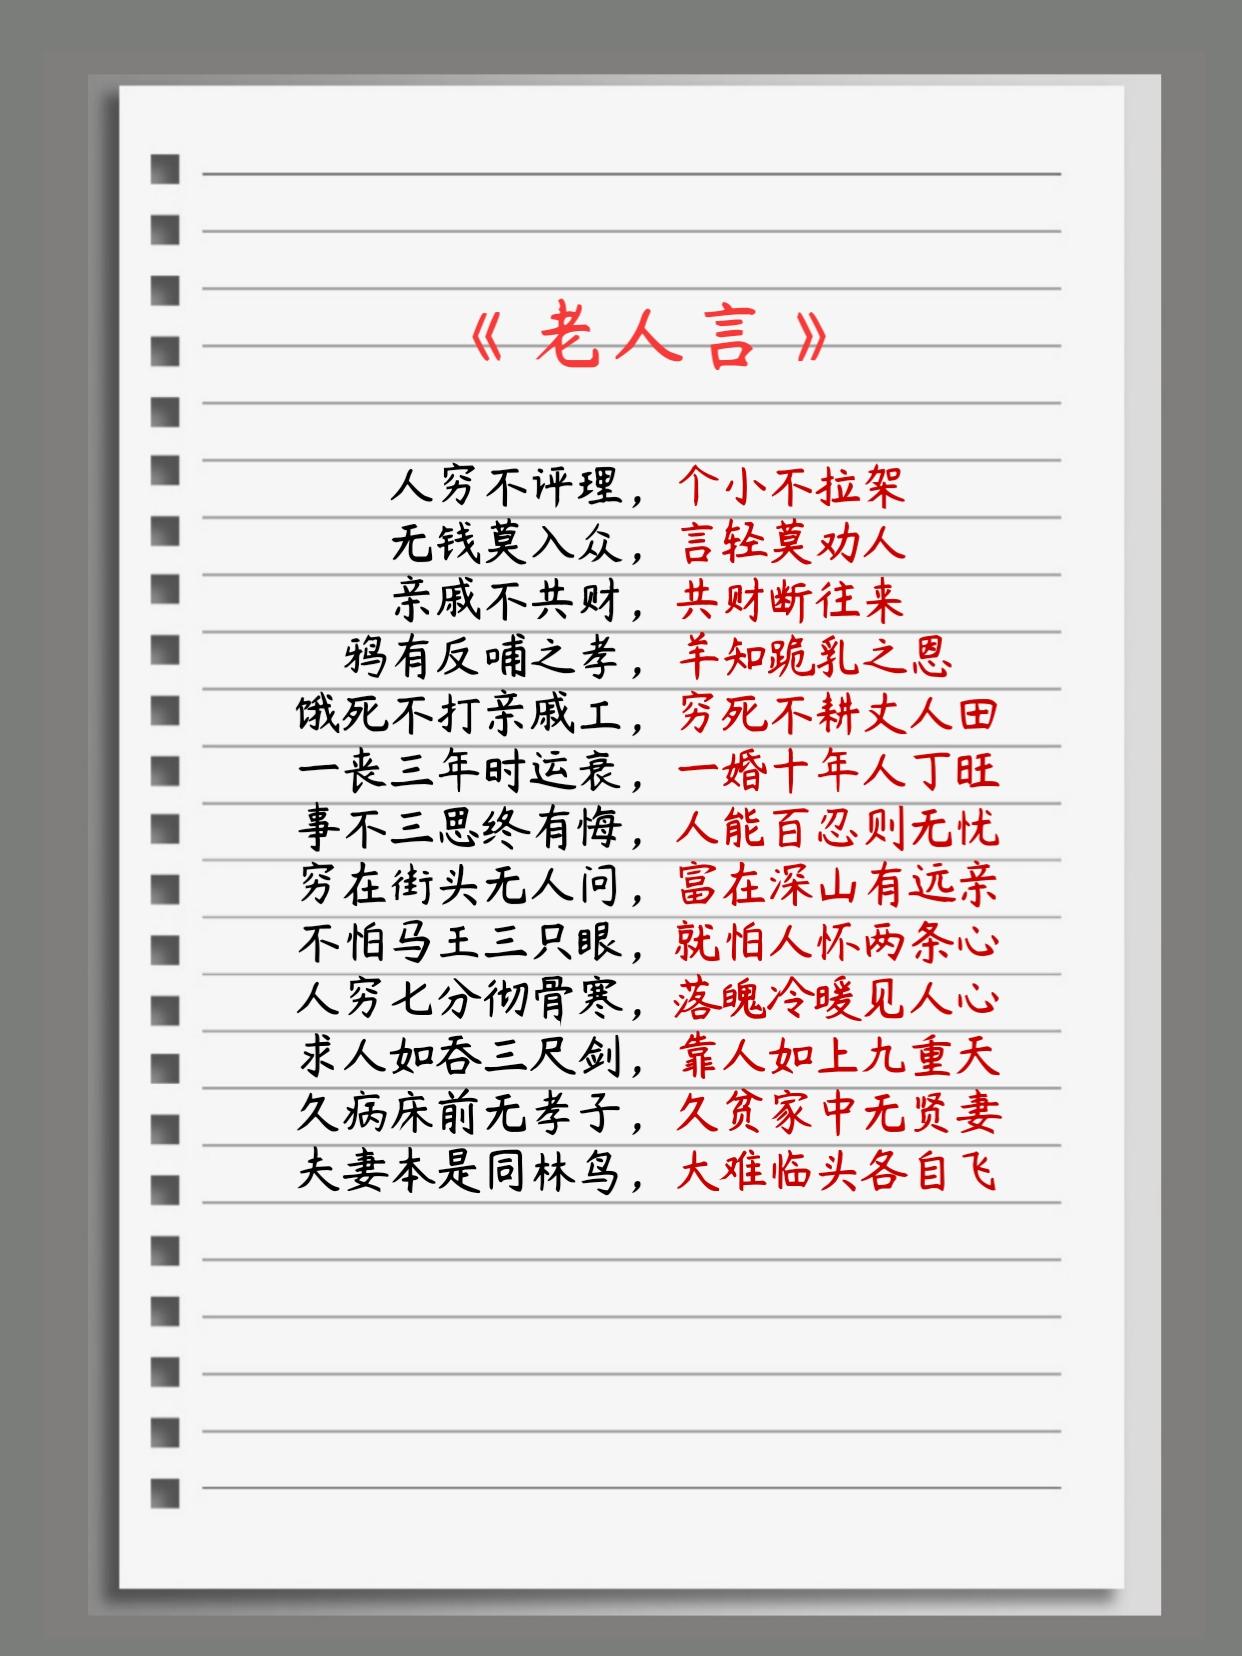 《老人言》
人穷不评理，个小不拉架
无钱莫入众，言轻莫劝人
亲戚不共财，共财断往来
鸦有反哺之孝，羊知跪乳之恩
饿死不打亲戚工，穷死不耕丈人田
一丧三年时运衰，一婚十年人丁旺
事不三思终有悔，人能百忍则无忧
穷在街头无人问，富在深山有远亲
不怕马王三只眼，就怕人怀两条心
人穷七分彻骨寒，落魄冷暖见人心
求人如吞三尺剑，靠人如上九重天
久病床前无孝子，久贫家中无贤妻
夫妻本是同林鸟，大难临头各自飞